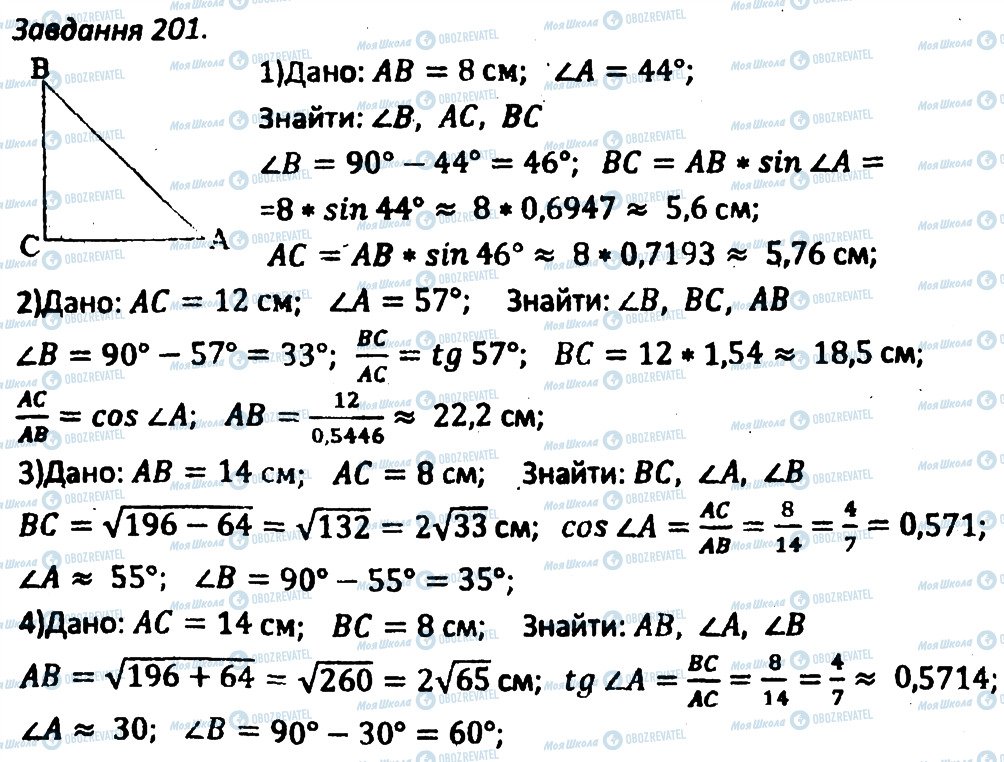 Завдання 201.
B
C
A
1)Дано: AB = 8 см; ∠A = 44°;
Знайти: ∠B, AC, BC
∠B = 90° − 44° = 46°; BC = AB * sin ∠A =
=8 * sin 44° ≈ 8 * 0,6947 ≈ 5,6 см;
AC = AB * sin 46° ≈ 8 * 0,7193 ≈ 5,76 см;
2)Дано: AC = 12 см; ∠A = 57°; Знайти: ∠B, BC, AB
∠B = 90° − 57° = 33°; BC/AC = tg 57°; BC = 12 * 1,54 ≈ 18,5 см;
AC/AB = cos ∠A; AB = 12/0,5446 ≈ 22,2 см;
3)Дано: AB = 14 см; AC = 8 см; Знайти: BC, ∠A, ∠B
BC = √196 − 64 = √132 = 2√33 см; cos ∠A = AC/AB = 8/14 = 4/7 = 0,571;
∠A ≈ 55°; ∠B = 90° − 55° = 35°;
4)Дано: AC = 14 см; BC = 8 см; Знайти: AB, ∠A, ∠B
AB = √196 + 64 = √260 = 2√65 см; tg ∠A = BC/AC = 8/14 = 4/7 ≈ 0,5714;
∠A ≈ 30; ∠B = 90° − 30° = 60°;
Моя Школа OBOZREVATEL